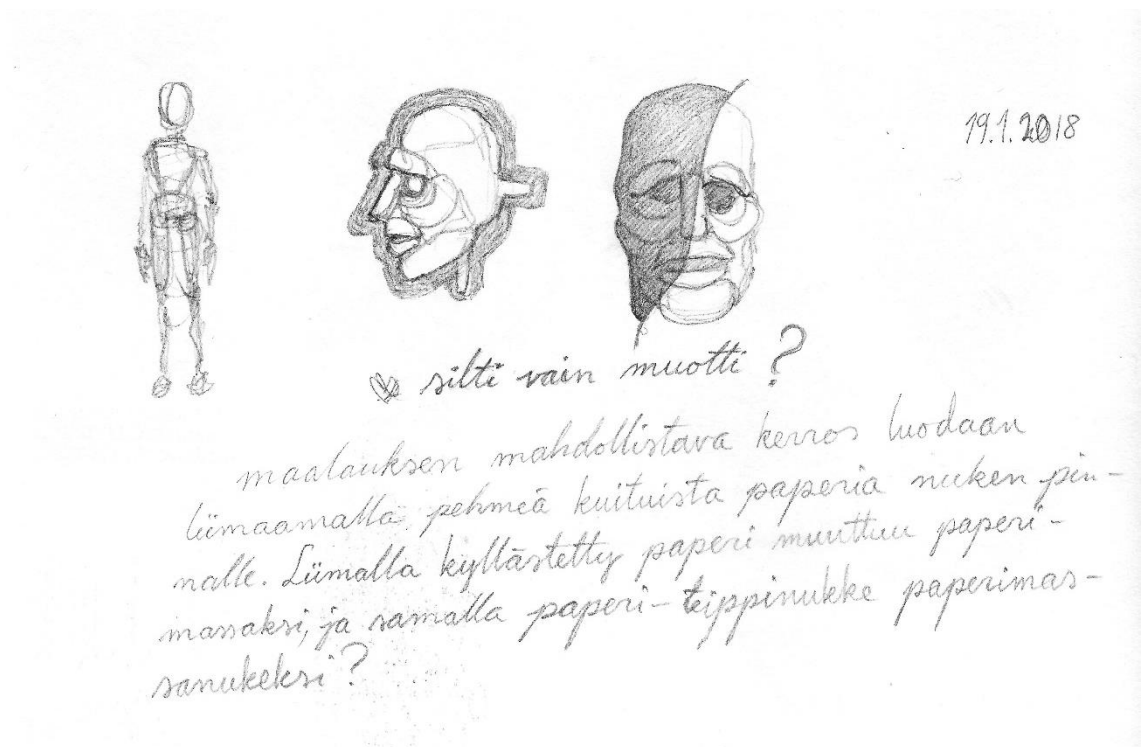 19.1.2018
silti vain muotti?
maalauksen mahdollistava kerros luodaan
liimaamalla pehmeä kuituista paperia nuken pin-
nalle. Liimalla kyllästetty paperi muuttuu paperi-
massaksi, ja samalla paperi-teippinukke paperimas-
sanukeksi?